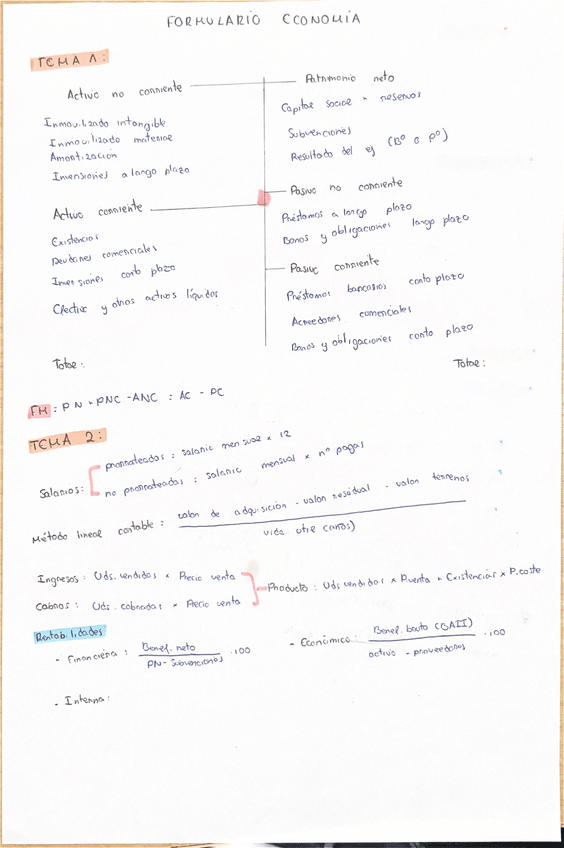 FORMULARIO ECONOMÍA
TEMA 1:
Activo no corriente
Inmovilizado intangible
Inmovilizado material
Amortización
Inversiones a largo plazo
Activo corriente
Existencias
Deudores comerciales
Inversiones corto plazo
Efectivo y otros activos líquidos
Total:
Patrimonio neto
Capital social + reservas
Subvenciones
Resultado del ej (Bº o Pº)
Pasivo no corriente
Préstamos a largo plazo
Bonos y obligaciones largo plazo
Pasivo corriente
Préstamos bancarios corto plazo
Acreedores comerciales
Bonos y obligaciones corto plazo
Total:
FM: PN + PNC - ANC : AC - PC
TEMA 2:
Salarios:
prorrateados : salario mensual x 12
no prorrateados : salario mensual x nº pagas
Método lineal contable : valor de adquisición - valor residual - valor terrenos
vida útil (años)
Ingresos: Uds. vendidas x Precio venta
Cobros: Uds. cobradas x Precio venta
Producto : Uds vendidas x P.venta + Existencias x P.coste
Rentabilidades
- Financiera : Benef. neto .100
PN - Subvenciones
- Económica : Benef. bruto (BAII) .100
activo - proveedores
- Interna: